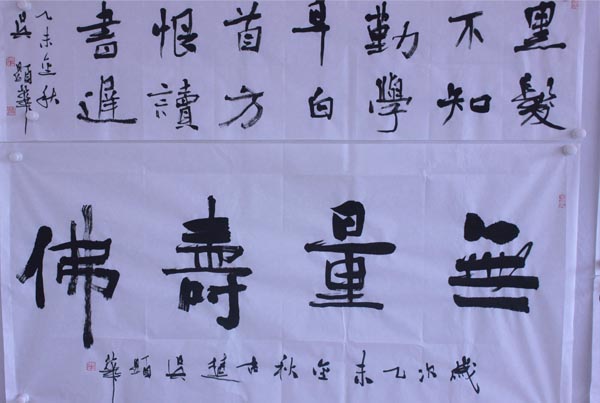 黑髮
不知
勤學
早白
首方
恨讀
書遲
乙未金秋
吳華
無量壽佛
歲次乙未金秋古吳華